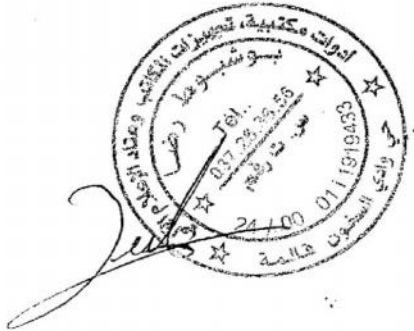 أدوات مكتبية، تجهيزات المكاتب وعتاد الإعلام
بوشبوط رضا
Tél..
037.26.39.56
س. ت رقم
24 / 00 0111919433
حي وادي السخون قالمة